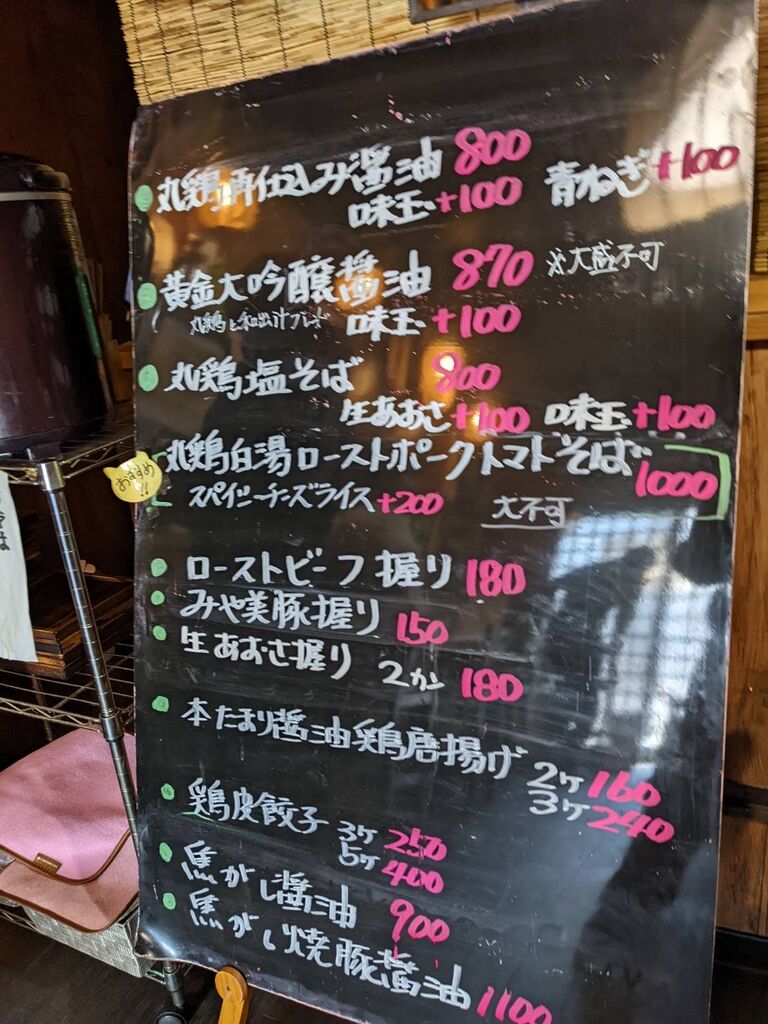 丸鶏再仕込み醤油 800
味玉+100 青ねぎ+100
黄金大吟醸醤油 870 ※大盛不可
丸鶏と和出汁ブレンド 味玉+100
丸鶏塩そば 800
生あおさ+100 味玉+100
おすすめ!!
丸鶏白湯ローストポークトマトそば 1000
スパイシーチーズライス+200 大不可
ローストビーフ握り 180
みや美豚握り 150
生あおさ握り 2カン 180
本たまり醤油鶏唐揚げ 2ケ160
3ケ240
鶏皮餃子 3ケ250
5ケ400
焦がし醤油 900
焦がし焼豚醤油 1100